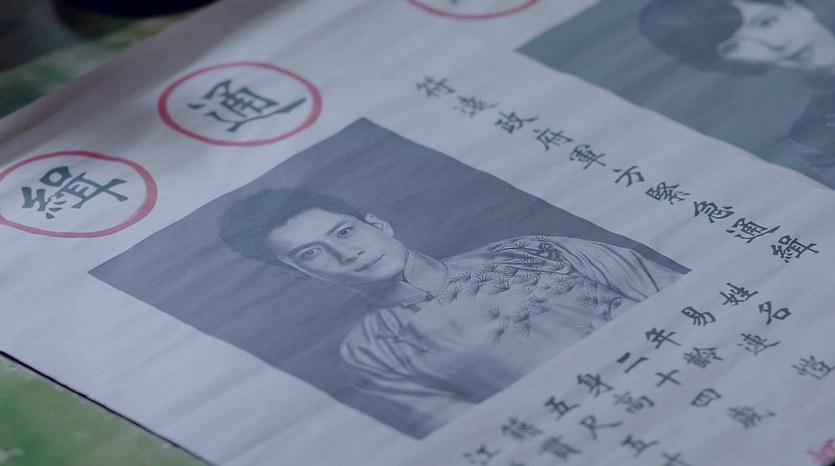 通緝
符遠政府軍方緊急通緝
姓名
易連愷
年齡
二十四歲
身高
五尺五寸
籍貫
江